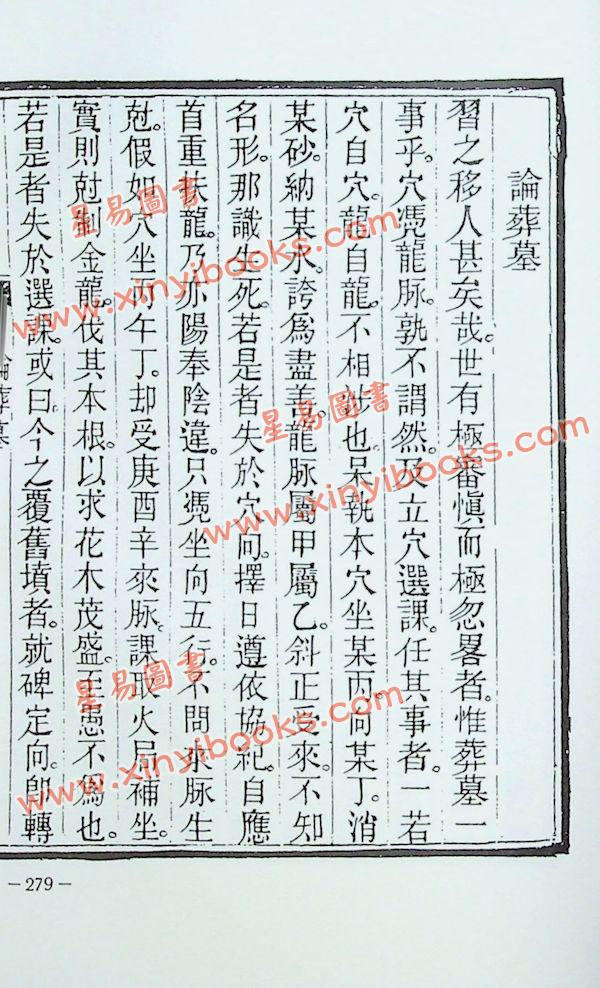 論葬墓
習之移人甚矣哉。世有極審慎而極忽畧者。惟葬墓一
事乎。穴憑龍脉。孰不謂然。及立穴選課。任其事者。一若
穴自穴。龍自龍。不相涉也。呆執本穴坐某丙。向某丁。消
某砂。納某水。誇爲盡善。龍脉屬甲屬乙。斜正受來。不知
名形。那識生死。若是者失於穴向。擇日遵依協紀。自應
首重扶龍。乃亦陽奉陰違。只憑坐向五行。不問來脉生
尅。假如穴坐丙午丁。却受庚酉辛來脉。課取火局補坐。
實則尅制金龍。伐其本根。以求花木茂盛。至愚不爲也。
若是者失於選課。或曰今之覆舊墳者。就碑定向。卽轉
論葬墓
— 279 —
星易圖書
www.xinyibooks.com
星易圖書
www.xinyibooks.com
星易圖書
www.xinyibooks.com